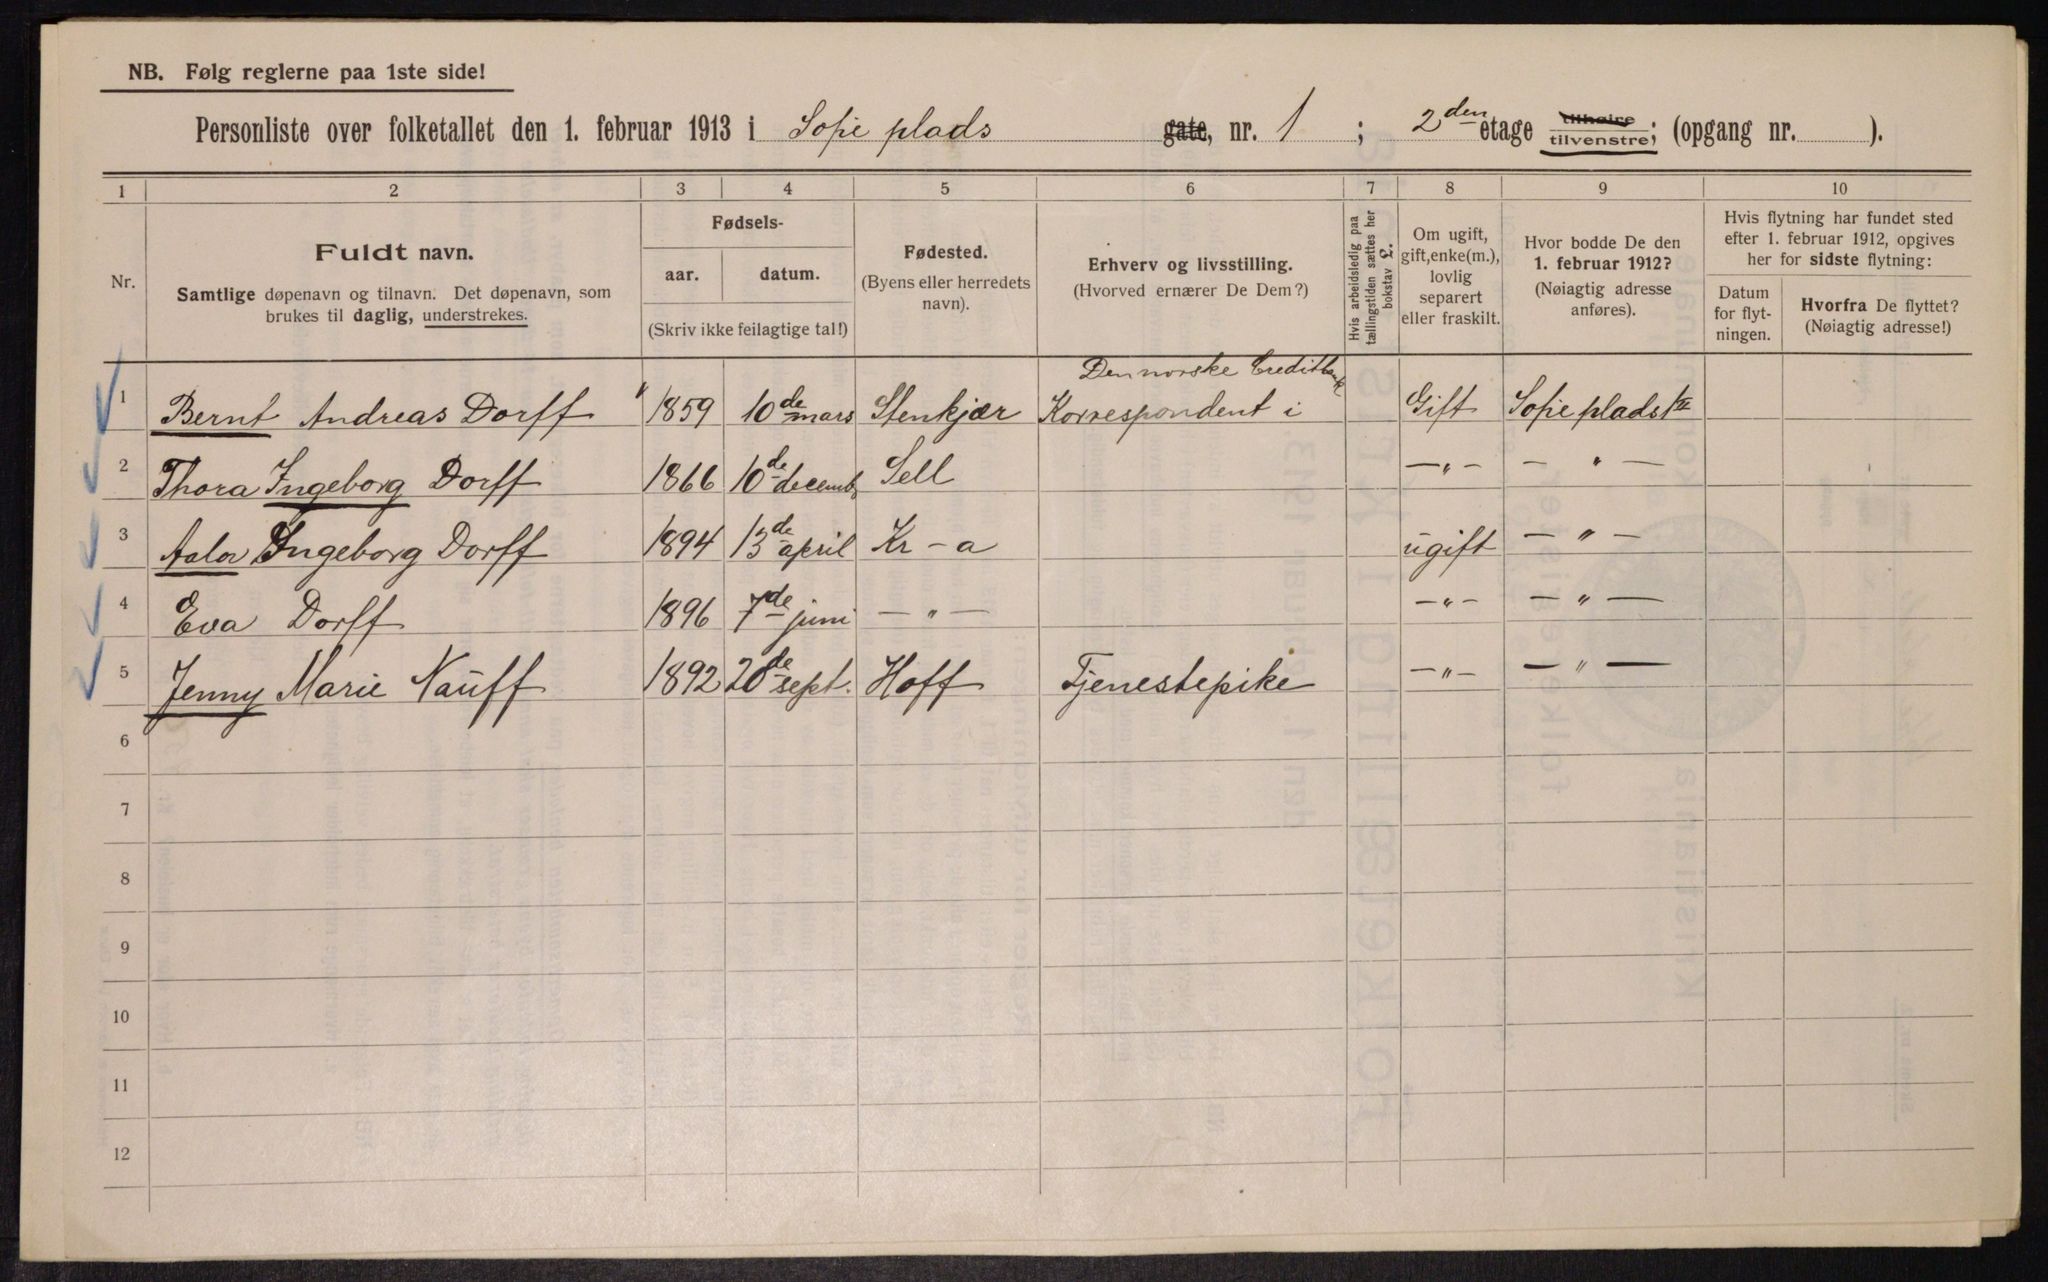 NB. Følg reglerne paa 1ste side!
Personliste over folketallet den 1. februar 1913 i Sofie plads gate, nr. 1; 2den etage tilhøire tilvenstre; (opgang nr. ).
1 2 3 4 5 6 7 8 9 10
Nr.
Fuldt navn.
Samtlige døpenavn og tilnavn. Det døpenavn, som
brukes til daglig, understrekes.
Fødsels-
aar. datum.
(Skriv ikke feilagtige tal!)
Fødested.
(Byens eller herredets
navn).
Erhverv og livsstilling.
(Hvorved ernærer De Dem?)
Hvis arbeidsledig paa
tællingstiden sættes her
bokstav £.
Om ugift,
gift, enke(m.),
lovlig
separert
eller fraskilt.
Hvor bodde De den
1. februar 1912?
(Nøiagtig adresse
anføres).
Hvis flytning har fundet sted
efter 1. februar 1912, opgives
her for sidste flytning:
Datum
for flyt-
ningen.
Hvorfra De flyttet?
(Nøiagtig adresse!)
Den norske Creditbank
1 Bernt Andreas Dorff 1859 10de mars Stenkjær Korrespondent i Gift Sofie plads 1 II
2 Thora Ingeborg Dorff 1866 10de decemb Sell —„— — „ —
3 Ingeborg Dorff 1894 13de april Kr-a ugift — „ —
4 Eva Dorff 1896 7de juni — „ — —„— — „ —
5 Jenny Marie Nauff 1892 20de sept. Hoff Tjenestepike —„— — „ —
6
7
8
9
10
11
12